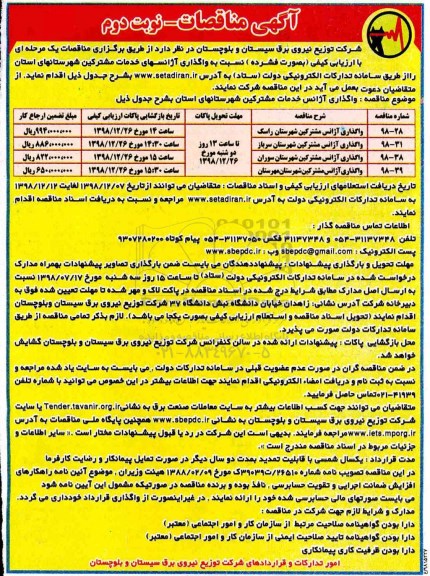 آگهی مناقصات - نوبت دوم
شرکت توزیع نیروی برق سیستان و بلوچستان در نظر دارد از طریق برگزاری مناقصات یک مرحله ای
با ارزیابی کیفی (بصورت فشرده) نسبت به واگذاری آژانسهای خدمات مشترکین شهرستانهای استان
را از طریق سامانه تدارکات الکترونیکی دولت (ستاد) به آدرس www.setadiran.ir بشرح جدول ذیل اقدام نماید. از
متقاضیان دعوت بعمل می آید در این مناقصه شرکت نمایند.
موضوع مناقصه : واگذاری آژانس خدمات مشترکین شهرستانهای استان بشرح جدول ذیل
شماره مناقصه	شرح مناقصه	مهلت تحویل پاکات	تاریخ بازگشایی پاکات ارزیابی کیفی	مبلغ تضمین ارجاع کار
98-28	واگذاری آژانس مشترکین شهرستان راسک	تا ساعت 13 روز دو شنبه مورخ 1398/12/26	ساعت 14 مورخ 1398/12/26	994,000,000 ریال
98-31	واگذاری آژانس مشترکین شهرستان سرباز	ساعت 14:30 مورخ 1398/12/26	886,000,000 ریال
98-38	واگذاری آژانس مشترکین شهرستان سوران	ساعت 15 مورخ 1398/12/26	822,000,000 ریال
98-39	واگذاری آژانس مشترکین شهرستان مهرستان	ساعت 15:30 مورخ 1398/12/26	650,000,000 ریال
تاریخ دریافت استعلامهای ارزیابی کیفی و اسناد مناقصات : متقاضیان می توانند از تاریخ 1398/12/07 لغایت 1398/12/12
به سامانه تدارکات الکترونیکی دولت به آدرس www.setadiran.ir مراجعه و نسبت به دریافت اسناد مناقصه اقدام
نمایند.
اطلاعات تماس مناقصه گذار :
تلفن 31137348-054 و 31137348 فکس 31137050-054 پیام کوتاه 9307880200
پست الکترونیک : sbepdc@gmail.com وب : www.sbepdc.ir
مهلت تحویل و بارگذاری پیشنهادات : پیشنهاددهندگان می بایست ضمن بارگذاری تصاویر پیشنهادات بهمراه مدارک
درخواست شده در سامانه تدارکات الکترونیکی دولت (ستاد) تا ساعت 15 روز سه شنبه مورخ 1398/07/17 نسبت
به ارسال اصل مدارک مطابق شرایط درج شده در اسناد مناقصه در پاکت لاک و مهر شده تا مهلت تعیین شده فوق به
دبیرخانه شرکت آدرس نشانی: زاهدان خیابان دانشگاه نبش دانشگاه 37 شرکت توزیع نیروی برق سیستان وبلوچستان
اقدام نمایند (تحویل اسناد مناقصه و استعلام ارزیابی کیفی بصورت یکجا می باشد). لازم بذکر تمامی مناقصه از طریق
سامانه تدارکات دولت صورت می پذیرد.
محل بازگشایی پاکات : پیشنهادات ارائه شده در سالن کنفرانس شرکت توزیع نیروی برق سیستان و بلوچستان گشایش
خواهد شد.
در ضمن مناقصه گران در صورت عدم عضویت قبلی در سامانه تدارکات دولت ، می بایست به سایت یاد شده مراجعه و
نسبت به ثبت نام و دریافت امضاء الکترونیکی اقدام نمایند جهت اطلاعات بیشتر در این خصوص می توانید با شماره تلفن
41939-021 تماس حاصل فرمایید.
متقاضیان می توانند جهت کسب اطلاعات بیشتر به سایت معاملات صنعت برق به نشانی Tender.tavanir.org.ir یا سایت
شرکت توزیع نیروی برق سیستان و بلوچستان به نشانی www.sbepdc.ir همچنین پایگاه ملی مناقصات به آدرس
www.iets.mporg.ir مراجعه فرمایند. بدیهی است این شرکت در رد یا قبول پیشنهادات مختار است . « سایر اطلاعات و
جزئیات مربوط در اسناد مناقصه مندرج است ».
مدت قرارداد : یکسال شمسی با قابلیت تمدید بمدت دو سال دیگر در صورت تمایل پیمانکار و رضایت کارفرما
در این مناقصه تصویب نامه شماره مورخ 1388/02/09 هیئت وزیران ، موضوع آئین نامه راهکارهای
افزایش ضمانت اجرایی و تقویت حسابرسی ، نافذ بوده و برنده مناقصه در صورتیکه مشمول این آیین نامه شود
می بایست صورتهای مالی حسابرسی شده خود را ارائه نمایند ، در غیراینصورت از واگذاری قرارداد خودداری می گردد.
مدارک و شرایط لازم جهت شرکت در مناقصه :
دارا بودن گواهینامه صلاحیت مرتبط از سازمان کار و امور اجتماعی (معتبر)
دارا بودن گواهینامه تایید صلاحیت ایمنی از سازمان کار و امور اجتماعی (معتبر)
دارا بودن ظرفیت کاری پیمانکاری
امور تدارکات و قراردادهای شرکت توزیع نیروی برق سیستان و بلوچستان